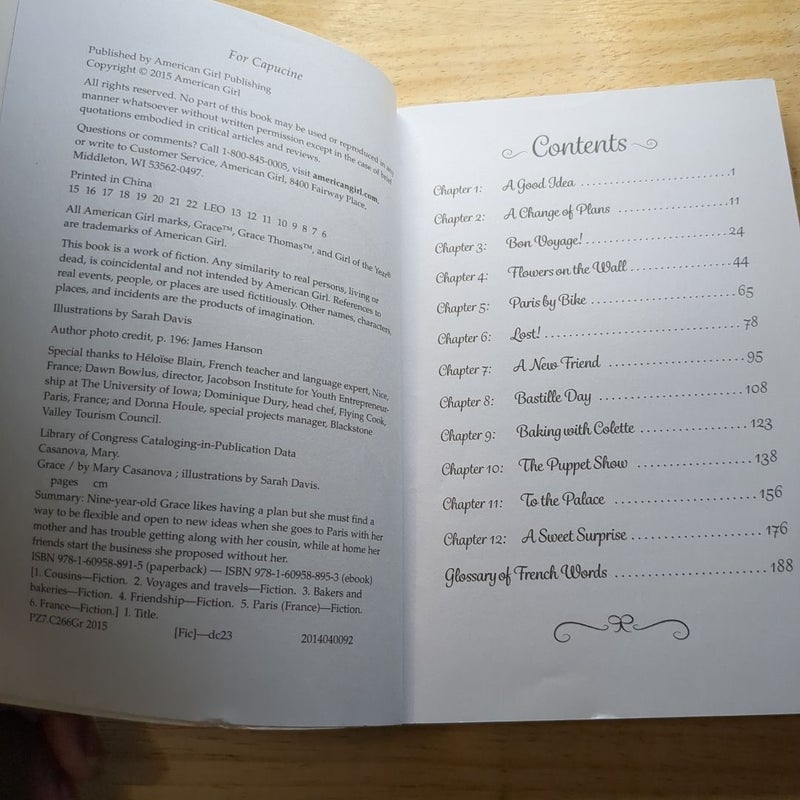 For Capucine
Published by American Girl Publishing
Copyright © 2015 American Girl
All rights reserved. No part of this book may be used or reproduced in any
manner whatsoever without written permission except in the case of brief
quotations embodied in critical articles and reviews.
Questions or comments? Call 1-800-845-0005, visit americangirl.com,
or write to Customer Service, American Girl, 8400 Fairway Place,
Middleton, WI 53562-0497.
Printed in China
15 16 17 18 19 20 21 22 LEO 13 12 11 10 9 8 7 6
All American Girl marks, Grace™, Grace Thomas™, and Girl of the Year®
are trademarks of American Girl.
This book is a work of fiction. Any similarity to real persons, living or
dead, is coincidental and not intended by American Girl. References to
real events, people, or places are used fictitiously. Other names, characters,
places, and incidents are the products of imagination.
Illustrations by Sarah Davis
Author photo credit, p. 196: James Hanson
Special thanks to Héloïse Blain, French teacher and language expert, Nice,
France; Dawn Bowlus, director, Jacobson Institute for Youth Entrepreneur-
ship at The University of Iowa; Dominique Dury, head chef, Flying Cook,
Paris, France; and Donna Houle, special projects manager, Blackstone
Valley Tourism Council.
Library of Congress Cataloging-in-Publication Data
Casanova, Mary.
Grace / by Mary Casanova ; illustrations by Sarah Davis.
pages cm
Summary: Nine-year-old Grace likes having a plan but she must find a
way to be flexible and open to new ideas when she goes to Paris with her
mother and has trouble getting along with her cousin, while at home her
friends start the business she proposed without her.
ISBN 978-1-60958-891-5 (paperback) — ISBN 978-1-60958-895-3 (ebook)
[1. Cousins—Fiction. 2. Voyages and travels—Fiction. 3. Bakers and
bakeries—Fiction. 4. Friendship—Fiction. 5. Paris (France)—Fiction.
6. France—Fiction.] I. Title.
PZ7.C266Gr 2015
[Fic]—dc23 2014040092
Contents
Chapter 1: A Good Idea ........................ 1
Chapter 2: A Change of Plans .................. 11
Chapter 3: Bon Voyage! ........................ 24
Chapter 4: Flowers on the Wall ................ 44
Chapter 5: Paris by Bike ...................... 65
Chapter 6: Lost! .............................. 78
Chapter 7: A New Friend ....................... 95
Chapter 8: Bastille Day ....................... 108
Chapter 9: Baking with Colette ................ 123
Chapter 10: The Puppet Show ................... 138
Chapter 11: To the Palace ..................... 156
Chapter 12: A Sweet Surprise .................. 176
Glossary of French Words ...................... 188